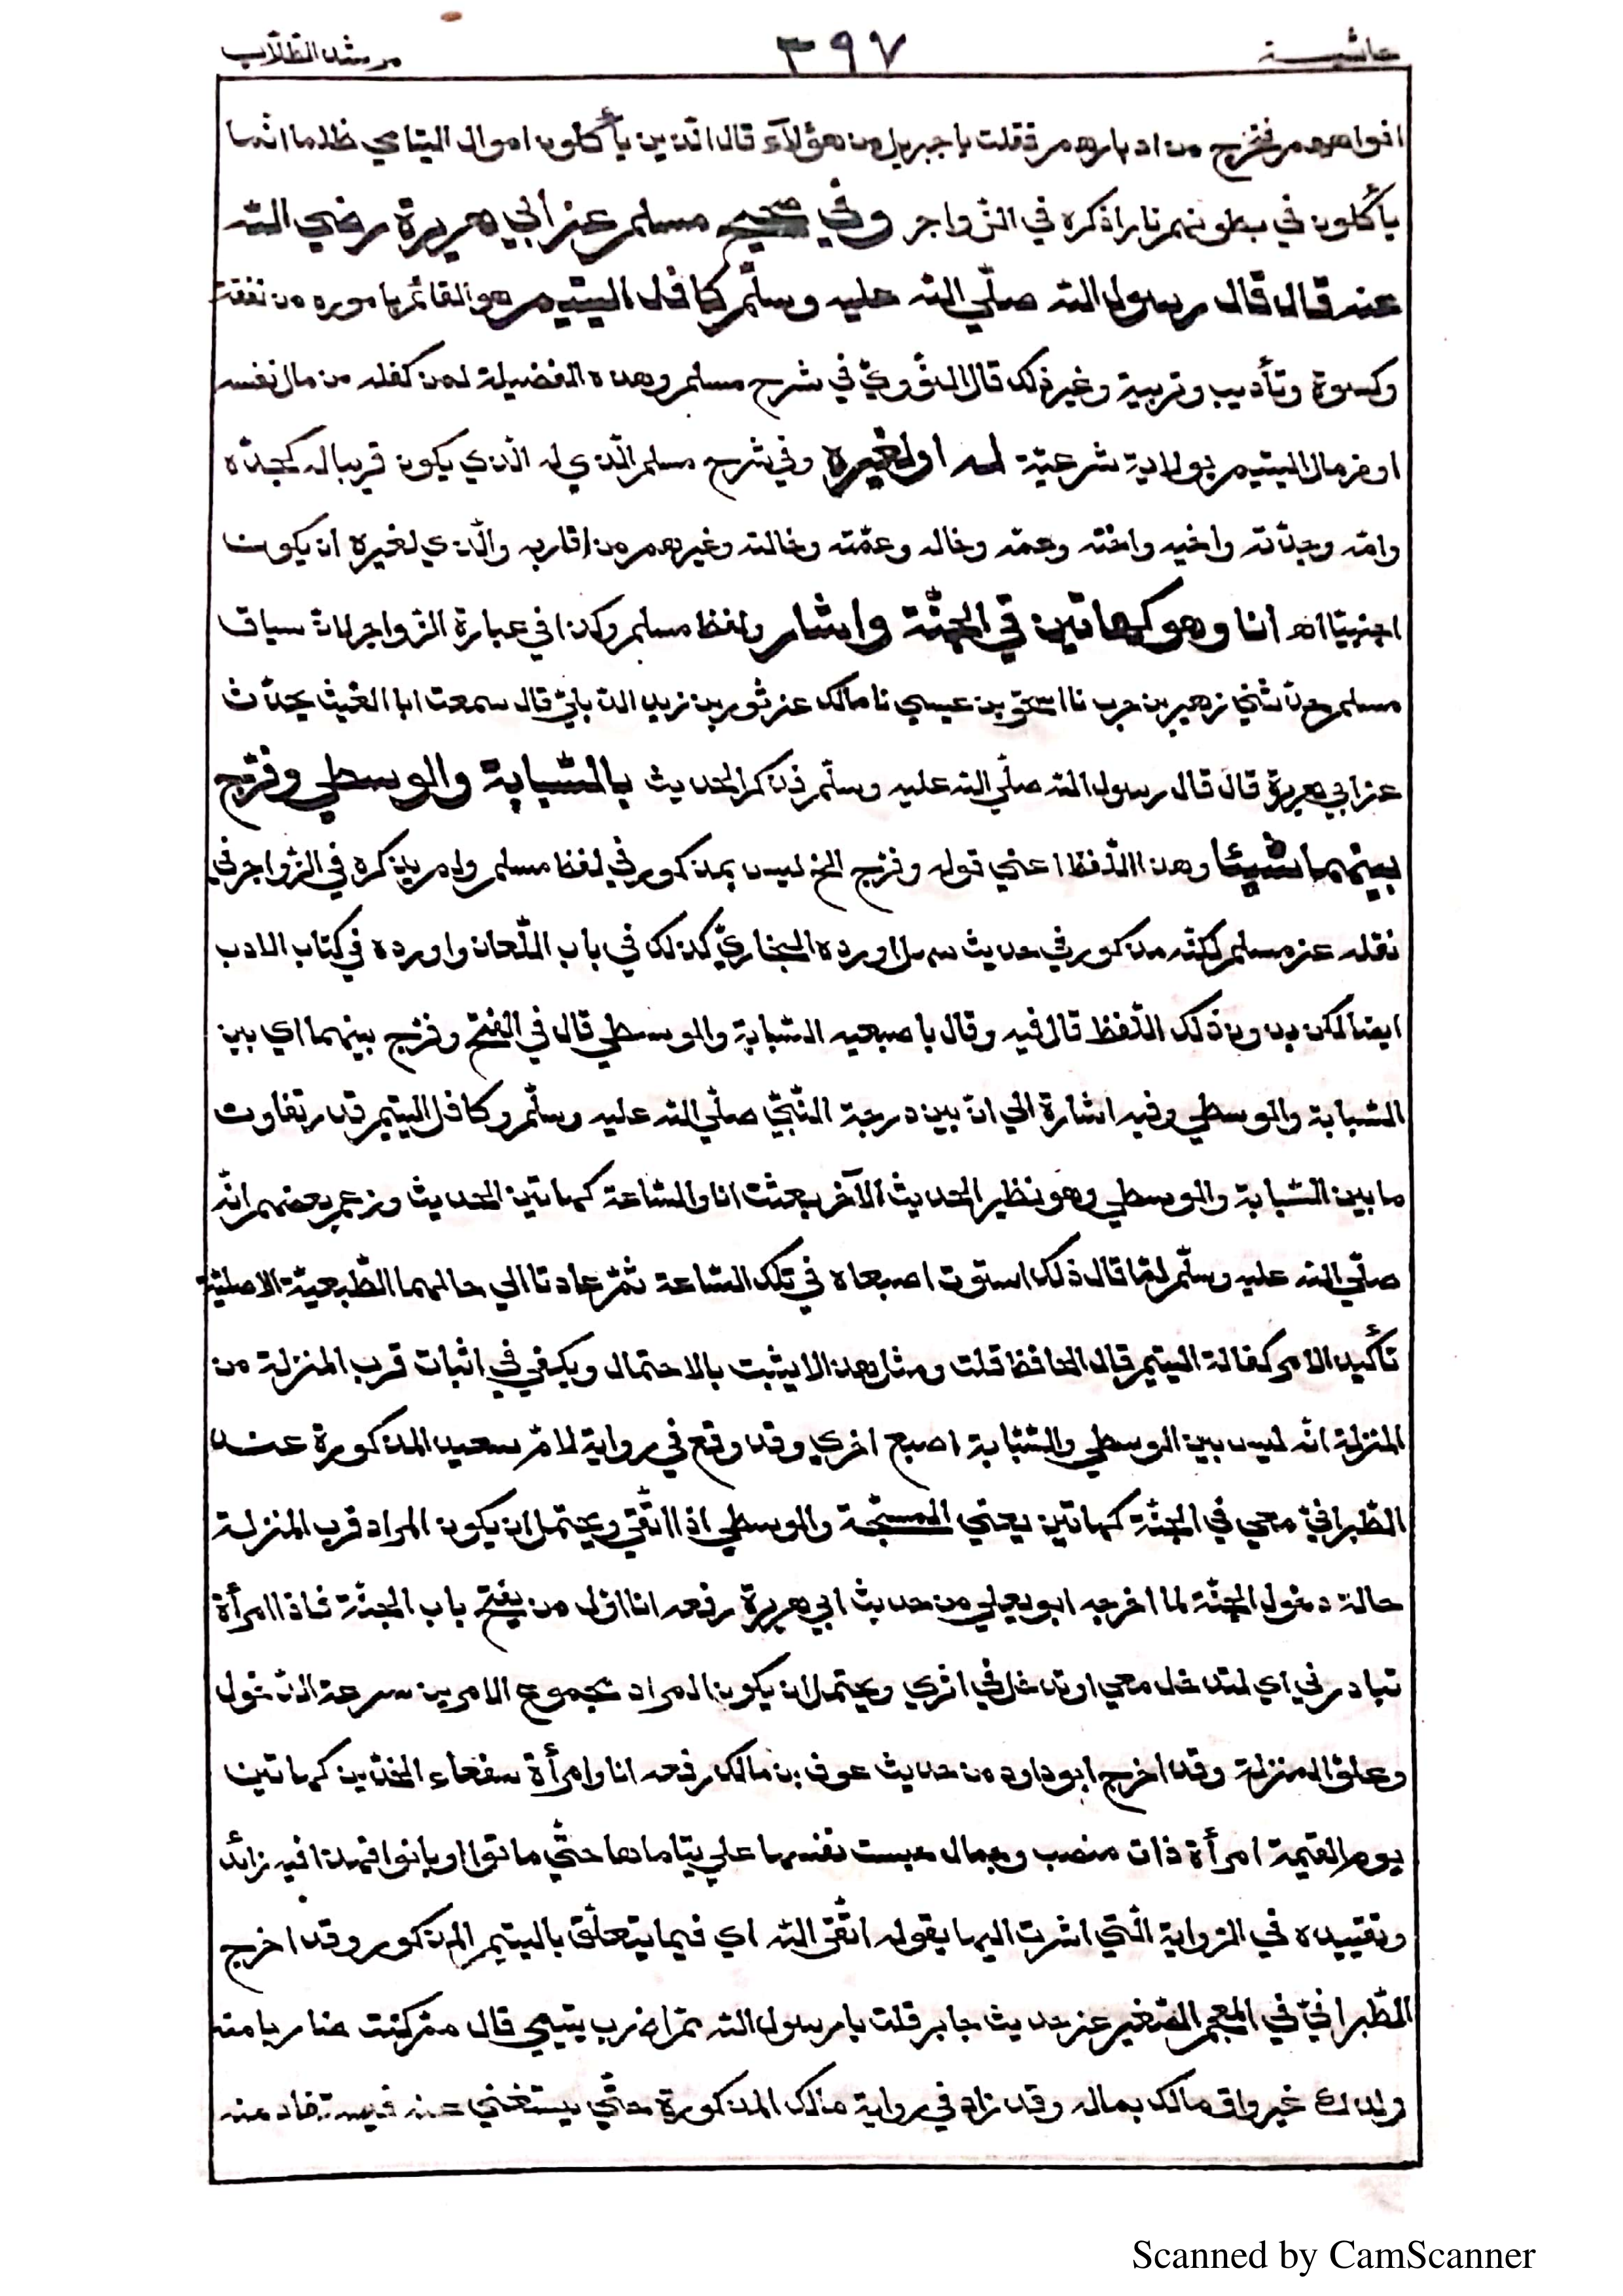 حاشيـــة ٣٩٧ مرشد الطلّاب
افواههم فتخرج من ادبارهم فقلت يا جبريل من هؤلآء قال الّذين يأكلون اموال اليتامي ظلما انّما
يأكلون في بطونهم نارا ذكره في الزّواجر وفي صحيح مسلم عن ابي هريرة رضي اللّه
عنه قال قال رسول اللّه صلّي اللّه عليه وسلّم كافل اليتيم هو القائم بأموره من نفقة
وكسوة وتأديب وتربية وغير ذلك قال النّوويّ في شرح مسلم وهذه الفضيلة لمن كفله من مال نفسه
او من مال اليتيم بولاية شرعيّة له او لغيره وفي شرح مسلم الّذي له الّذي يكون قريبا له كجدّه
وامّه وجدّته واخيه واخته وعمّه وخاله وعمّته وخالته وغيرهم من اقاربه والّذي لغيره ان يكون
اجنبيّا اه انا وهو كهاتين في الجنّة واشار ولفظ مسلم وكذا في عبارة الزّواجر لاث سياق
مسلم حدّثني زهير بن حرب نا اسحٰق بن عيسي نا مالك عن ثور بن زيد الدّيليّ قال سمعت ابا الغيث يحدّث
عن ابي هريرة قال قال رسول اللّه صلّي اللّه عليه وسلّم فذكر الحديث بالسّبابة والوسطي وفرّج
بينهما شيئا وهذا اللّفظ اعني قوله وفرّج الخ ليس بمذكور في لفظ مسلم ولم يذكره في الزّواجر في
نقله عن مسلم لكنّه مذكور في حديث سهل اورده البخاريّ كذلك في باب اللّعان واورده في كتاب الادب
ايضا لكن بدون ذلك اللّفظ قال فيه وقال باصبعيه السّبابة والوسطي قال في الفتح وفرّج بينهما اي بين
السّبابة والوسطي وفيه اشارة الي انّ بين درجة النّبيّ صلّي اللّه عليه وسلّم وكافل اليتيم قدر تفاوت
ما بين السّبابة والوسطي وهو نظير الحديث الآخر بعثت انا والسّاعة كهاتين الحديث وزعم بعضهم انّه
صلّي اللّه عليه وسلّم لمّا قال ذلك استوت اصبعاه في تلك السّاعة ثمّ عادتا الي حالهما الطّبعيّة الاصليّة
تأكيد الامر كفالة اليتيم قال الحافظ قلت ومثل هذا لا يثبت بالاحتمال ويكفي في اثبات قرب المنزلة من
المنزلة انّه ليس بين الوسطي والسّبّابة اصبع اخري وقد وقع في رواية لامّ سعيد المذكورة عند
الطّبرانيّ معي في الجنّة كهاتين يعني المسبّحة والوسطي اذا اتّقي ويحتمل ان يكون المراد قرب المنزلة
حالة دخول الجنّة لما اخرجه ابو يعلي من حديث ابي هريرة رفعه انا اوّل من يفتح باب الجنّة فاذا امرأة
تبادرني اي لتدخل معي او تدخل في اثري ويحتمل ان يكون المراد مجموع الامرين سرعة الدّخول
وعلوّ المنزلة وقد اخرج ابو داود من حديث عوف بن مالك رفعه انا وامرأة سفعاء الخدّين كهاتين
يوم القيٰمة امرأة ذات منصب وجمال حبست نفسها علي يتاماها حتّي ماتوا او بانوا فهذا فيه زائد
وتقييده في الرّواية الّتي اشرت اليها بقوله اتّقي اللّه اي فيما يتعلّق باليتيم المذكور وقد اخرج
الطّبرانيّ في المعجم الصّغير عن حديث جابر قلت يا رسول اللّه ممّ اضرب يتيمي قال ممّ كنت ضاربا منه
ولدك غير واق مالك بماله وقد زاد في رواية مالك المذكورة حتّي يستغني عنه فيستفاد منه
Scanned by CamScanner